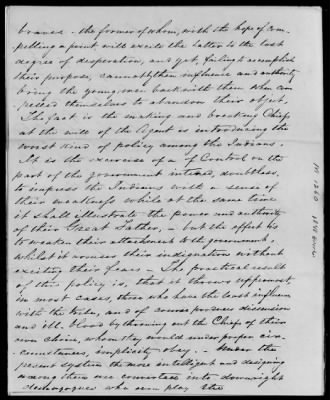 braves - the former of whom, with the hope of com-
pelling a point will excite the latter to the last
degree of desperation, and yet, failing to accomplish
their purpose, cannot by their influence and authority
bring the young men back with them when com
pelled themselves to abandon their object.
The fact is the making and breaking Chiefs
at the will of the Agent is introducing the
worst kind of policy among the Indians.
It is the exercise of a Control on the
part of the government intended, doubtless,
to impress the Indians with a sense of
their meekness while at the same time
it shall illustrate the power and authority
of their Great Father, - but the effect is
to weaken their attachment to the government,
whilst it arouses their indignation without
exciting their fears - The practical result
of this policy is, that it throws uppermost,
in most cases, those who have the least influence
with the tribe, and of course produces dissension
and ill-blood by throwing out the Chiefs of their
own choice, whom they would under proper cir-
cumstances, implicitly obey. - Under the
present system the more intelligent and designing
among them are converted into downright
demagogues who can play the